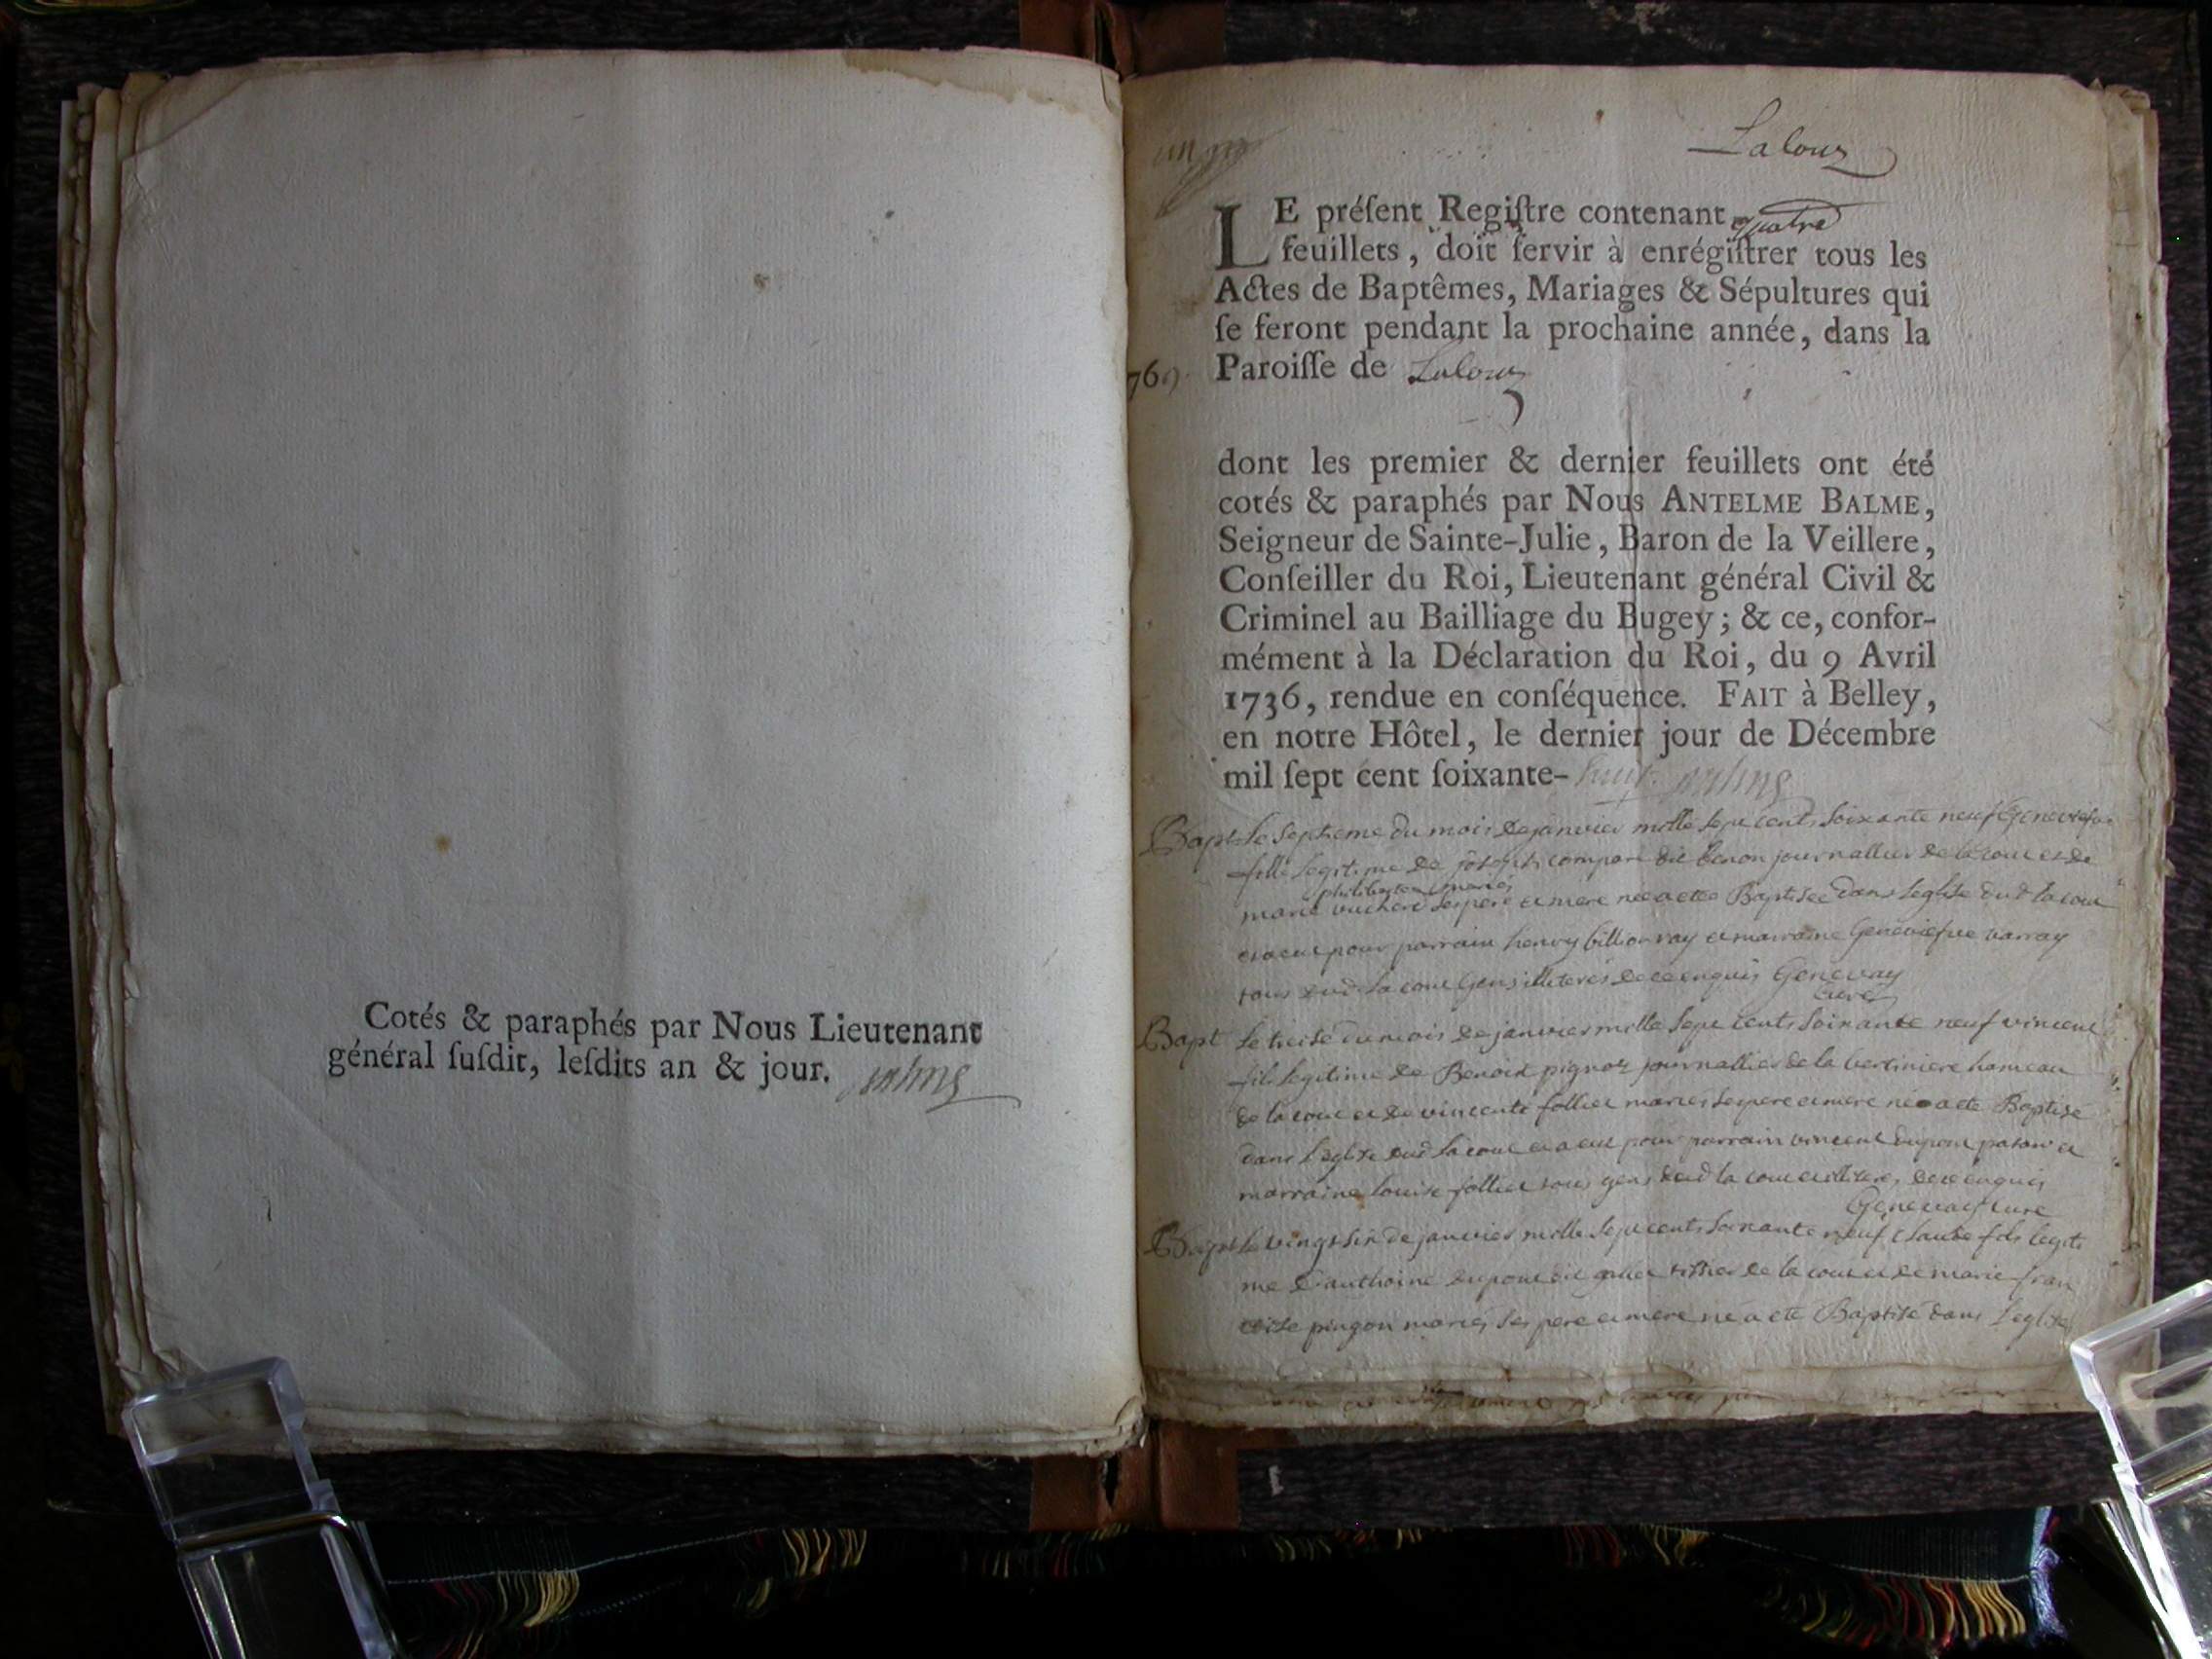 Cotés & paraphés par Nous Lieutenant
général ſuſdit, leſdits an & jour. Balme
un
Lalouz
LE préſent Regiſtre contenant quatre
feuillets, doit ſervir à enrégiſtrer tous les
Actes de Baptêmes, Mariages & Sépultures qui
ſe feront pendant la prochaine année, dans la
769. Paroiſſe de Lalouz
dont les premier & dernier feuillets ont été
cotés & paraphés par Nous ANTELME BALME,
Seigneur de Sainte-Julie, Baron de la Veillere,
Conſeiller du Roi, Lieutenant général Civil &
Criminel au Bailliage du Bugey; & ce, confor-
mément à la Déclaration du Roi, du 9 Avril
1736, rendue en conſéquence. FAIT à Belley,
en notre Hôtel, le dernier jour de Décembre
mil ſept cent ſoixante-huit. Balme
Bapt Le septieme du mois de janvier mille sept cents soixante neuf
fille legitime de joseph compare dit benon journallier de la coux et de
philiberte mariés
marie ses pere et mere née a eté Baptisée dans leglise dud la coux
et a eu pour parrain henry billion ray et marraine Geneviefve varray
tous dud la coux Gens illiterés de ce enquis Genevay
Curé
Bapt Le treise du mois de janvier mille sept cents soixante neuf vincent
fils legitime de Benoit pignoz journallier de la bertiniere hameau
de la coux et de vincente follier mariés ses pere et mere né a eté Baptisé
dans l'eglise dud la coux et a eu pour parrain vincent dupont et
marraine louise follier tous gens dud la coux illiterés de ce enquis
Genevay Curé
Bapt Le vingt six de janvier mille sept cents soixante neuf Claude fils legiti
me d'anthoine dupont dit tissier de la coux et de marie fran
coise pingon mariés ses pere et mere né a eté Baptisé dans L'eglise